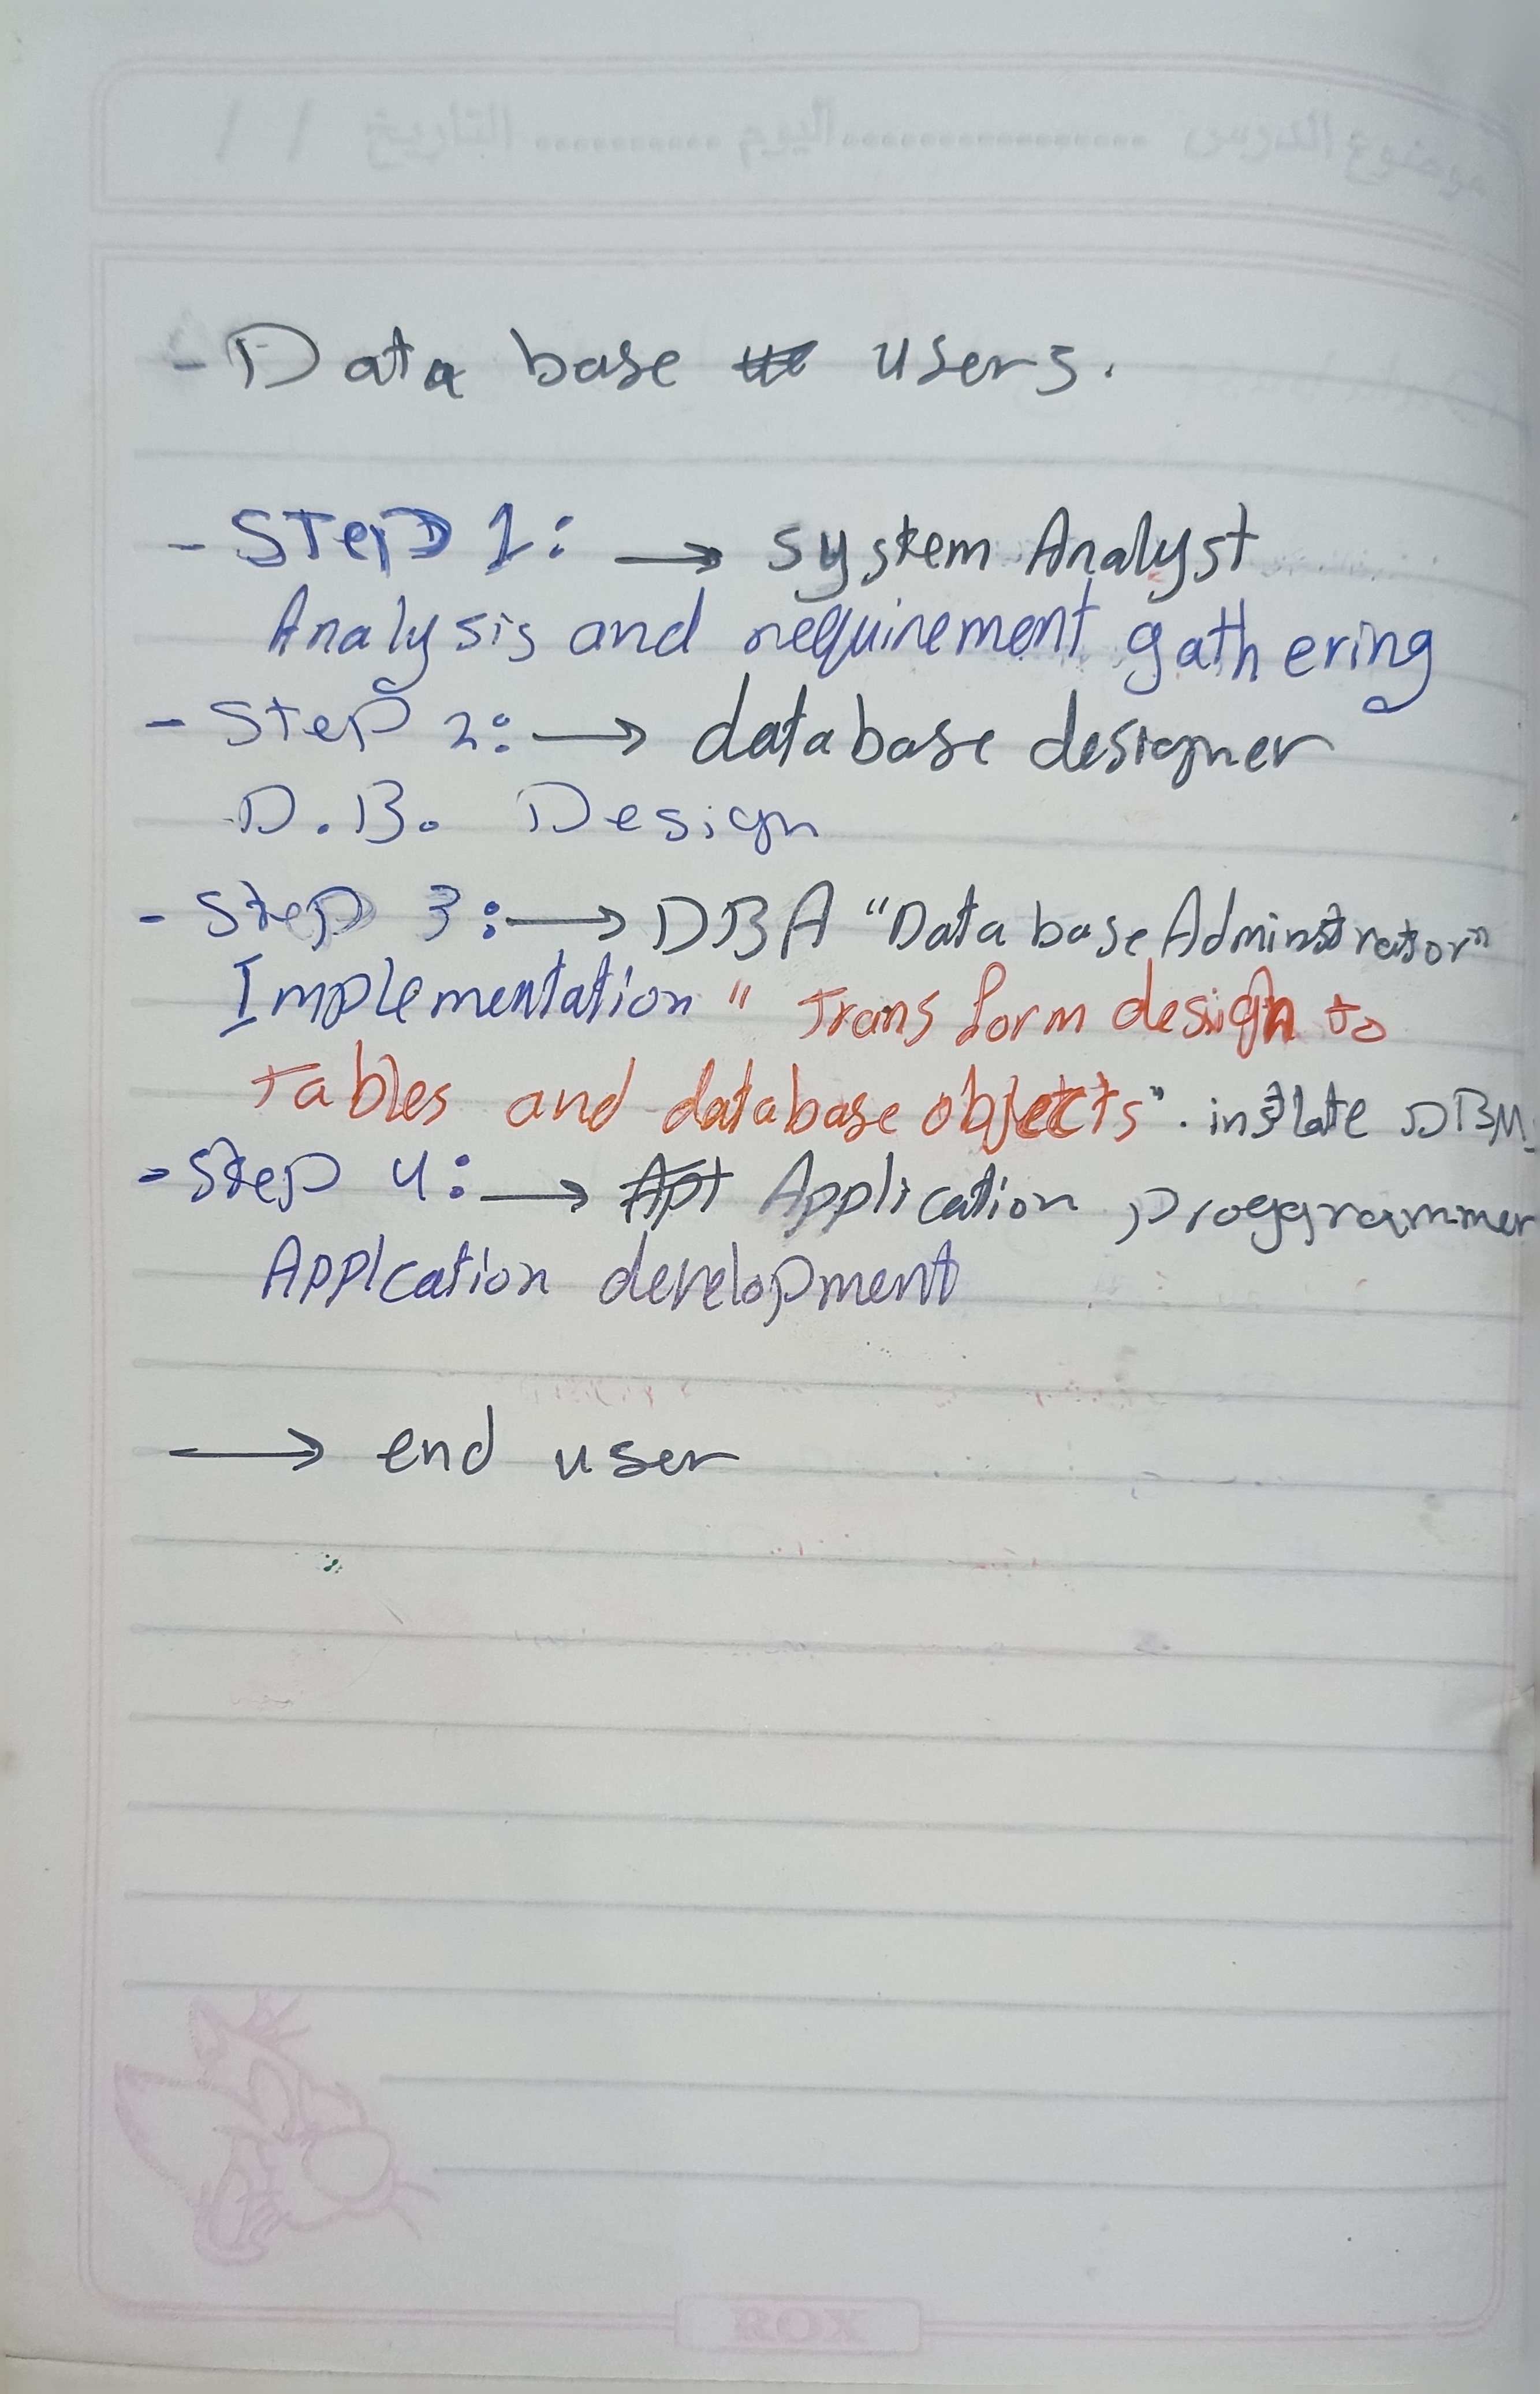 - Data base users.
- Step 1: → system Analyst
Analysis and requirement gathering
- Step 2: → database designer
D.B. Design
- Step 3: → DBA "Data base Adminstrator"
Implementation " Trans form design to
Tables and database objects". instate DBM
- Step 4: → Application proggrammer
Applcation development
→ end user